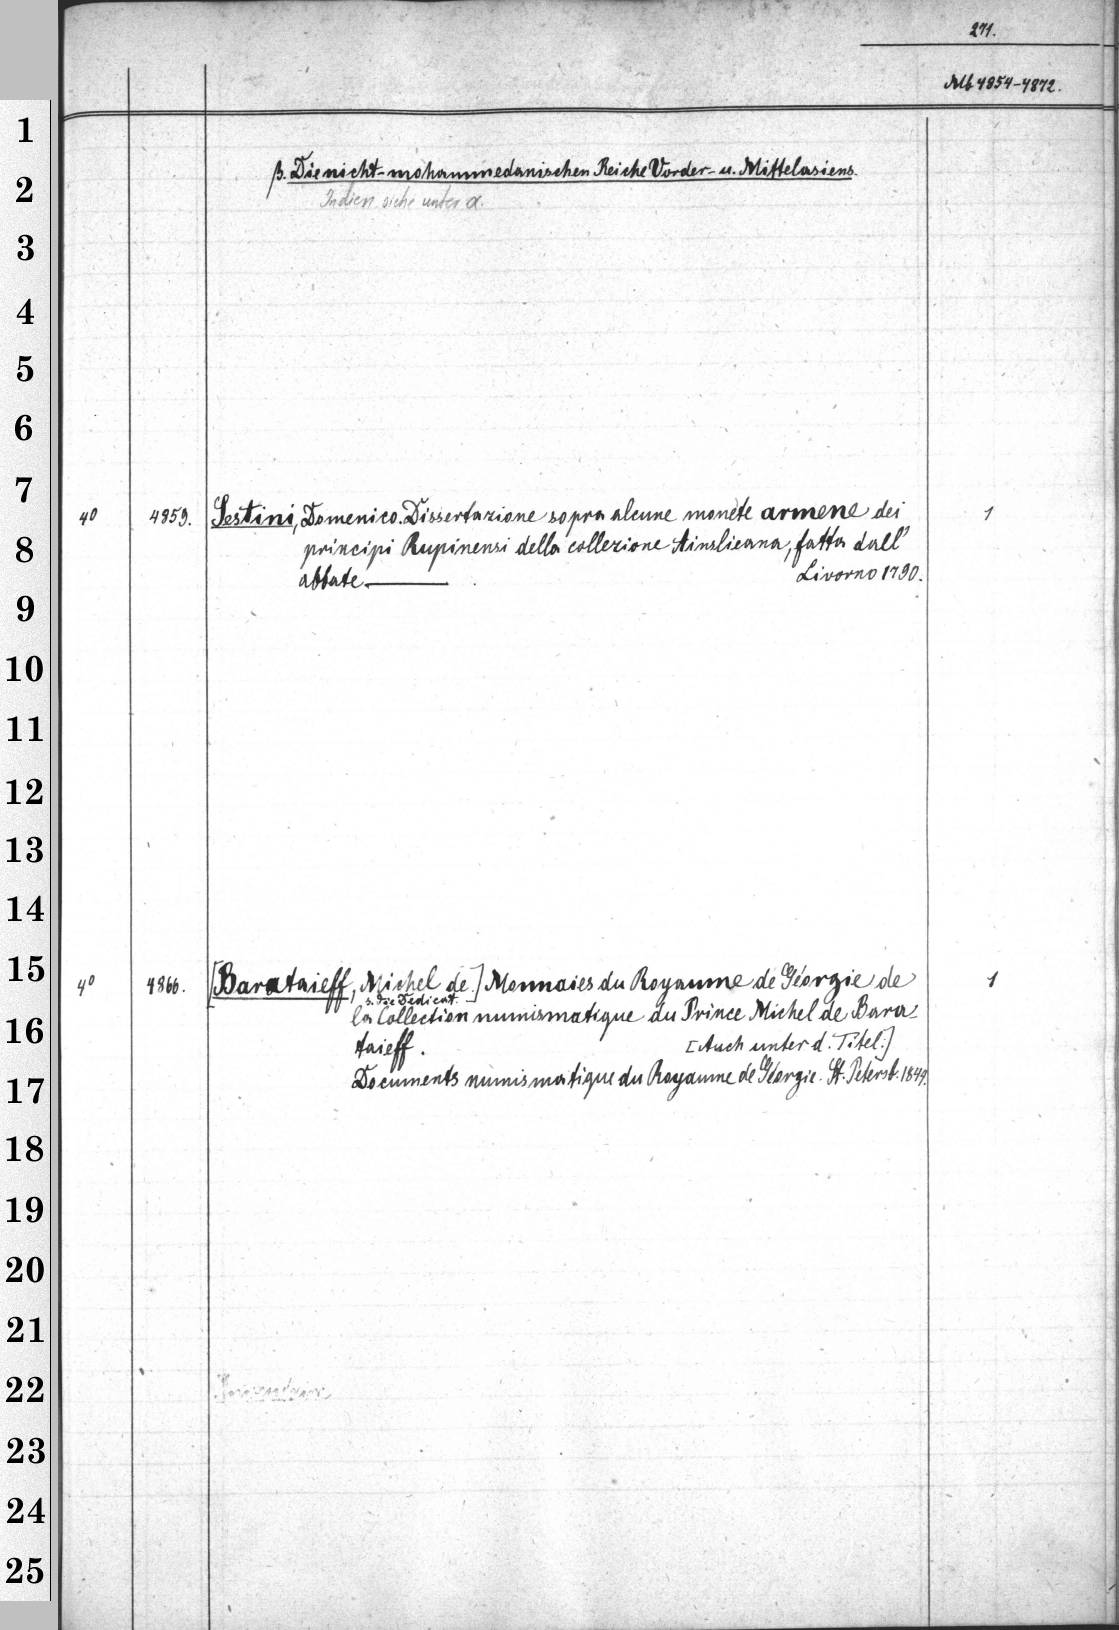 271.
Alb 4854-4872.
β. Die nicht-mohammedanischen Reiche Vorder- u. Mittelasiens.
Indien siehe unter α.
4⁰ 4859. Sestini, Domenico. Dissertazione sopra alcune monete armene dei 1
principi Rupinensi della collezione Ainslieana, fatta dall'
abbate ——. Livorno 1790.
4⁰ 4866. [Barataieff, Michel de] Monnaies du Royaume de Géorgie de 1
s. die Dedicat.
la Collection numismatique du Prince Michel de Bara-
taieff. [Auch unter d. Titel:]
Documents numismatique du Royaume de Géorgie. St. Petersb. 1849.
1
2
3
4
5
6
7
8
9
10
11
12
13
14
15
16
17
18
19
20
21
22
23
24
25